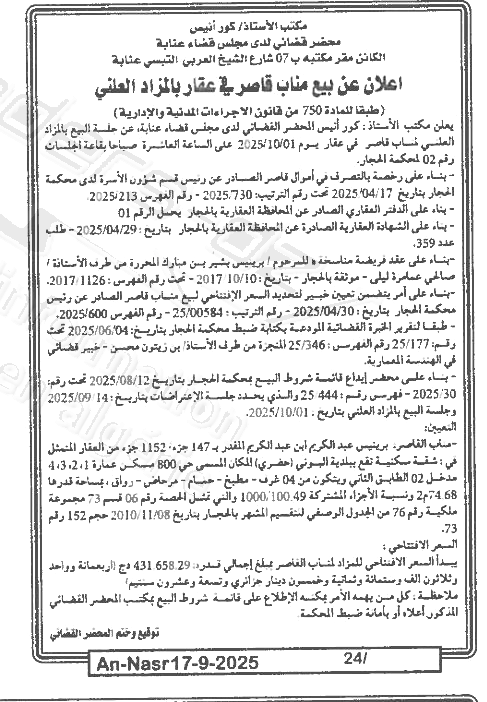 مكتب الأستاذ/ كور أنيس
محضر قضائي لدى مجلس قضاء عنابة
الكائن مقر مكتبه ب 07 شارع الشيخ العربي التبسي عنابة
اعلان عن بيع مناب قاصر في عقار بالمزاد العلني
(طبقا للمادة 750 من قانون الاجراءات المدنية والإدارية)
يعلن مكتب الأستاذ : كور أنيس المحضر القضائي لدى مجلس قضاء عنابة، عن جلسة البيع بالمزاد
العلني لمناب قاصر في عقار يوم 2025/10/01 على الساعة العاشرة صباحا بقاعة الجلسات
رقم 02 لمحكمة الحجار.
- بناء على رخصة بالتصرف في أموال قاصر الصادر عن رئيس قسم شؤون الأسرة لدى محكمة
الحجار بتاريخ 2025/04/17 تحت رقم الترتيب: 2025/730 - رقم الفهرس 2025/213.
- بناء على الدفتر العقاري الصادر عن المحافظة العقارية بالحجار يحمل الرقم 01
- بناء على الشهادة العقارية الصادرة عن المحافظة العقارية بالحجار بتاريخ : 2025/04/29 - طلب
عدد 359.
-بناء على عقد فريضة مناسخة للمرحوم / برينيس بشير بن مبارك المحررة من طرف الأستاذة /
صالحي عمامرة ليلى - موثقة بالحجار - بتاريخ : 2017/10/10 - تحت رقم الفهرس : 2017/1126.
-بناء على أمر يتضمن تعيين خبير لتحديد السعر الإفتتاحي لبيع مناب قاصر الصادر عن رئيس
محكمة الحجار بتاريخ : 2025/04/30 - رقم الترتيب : 25/00584 - رقم الفهرس 2025/600.
- طبقا لتقرير الخبرة القضائية المودعة بكتابة ضبط محكمة الحجار بتاريخ: 2025/06/04 تحت
رقم: 25/177 رقم الفهرس : 25/346 المنجزة من طرف الأستاذ/ بن زيتون محسن - خبير قضائي
في الهندسة المعمارية.
- بناء على محضر إيداع قائمة شروط البيع بمحكمة الحجار بتاريخ 2025/08/12 تحت رقم:
2025/30 - فهرس رقم : 25/444 والذي يحدد جلسة الإعتراضات بتاريخ : 2025/09/14
وجلسة البيع بالمزاد العلني بتاريخ : 2025/10/01.
التعيين:
-مناب القاصر، برينيس عبد الكريم ابن عبد الكريم المقدر ب 147 جزء، 1152 جزء من العقار المتمثل
في : شقة سكنية تقع ببلدية البوني (حضري) المكان المسمى حي 800 مسكن عمارة 4،3،2،1
مدخل 02 الطابق الثاني ويتكون من 04 غرف - مطبخ - حمام - مرحاض - رواق ، بمساحة قدرها
74.68م2 ونسبة الأجزاء المشتركة 1000/100.49 والتي تمثل الحصة رقم 06 قسم 73 مجموعة
ملكية رقم 76 من الجدول الوصفي للتقسيم المشهر بالحجار بتاريخ 2010/11/08 حجم 152 رقم
73.
السعر الافتتاحي :
يبدأ السعر الافتتاحي للمزاد لمناب القاصر بمبلغ إجمالي قدره: 431 658.29 دج (اربعمائة وواحد
وثلاثون الف وستمائة وثمانية وخمسون دينار جزائري وتسعة وعشرون سنتيم)
ملاحظة : كل من يهمه الأمر يمكنه الإطلاع على قائمة شروط البيع بمكتب المحضر القضائي
المذكور أعلاه أو بأمانة ضبط المحكمة.
توقيع وختم المحضر القضائي
An-Nasr17-9-2025
24/